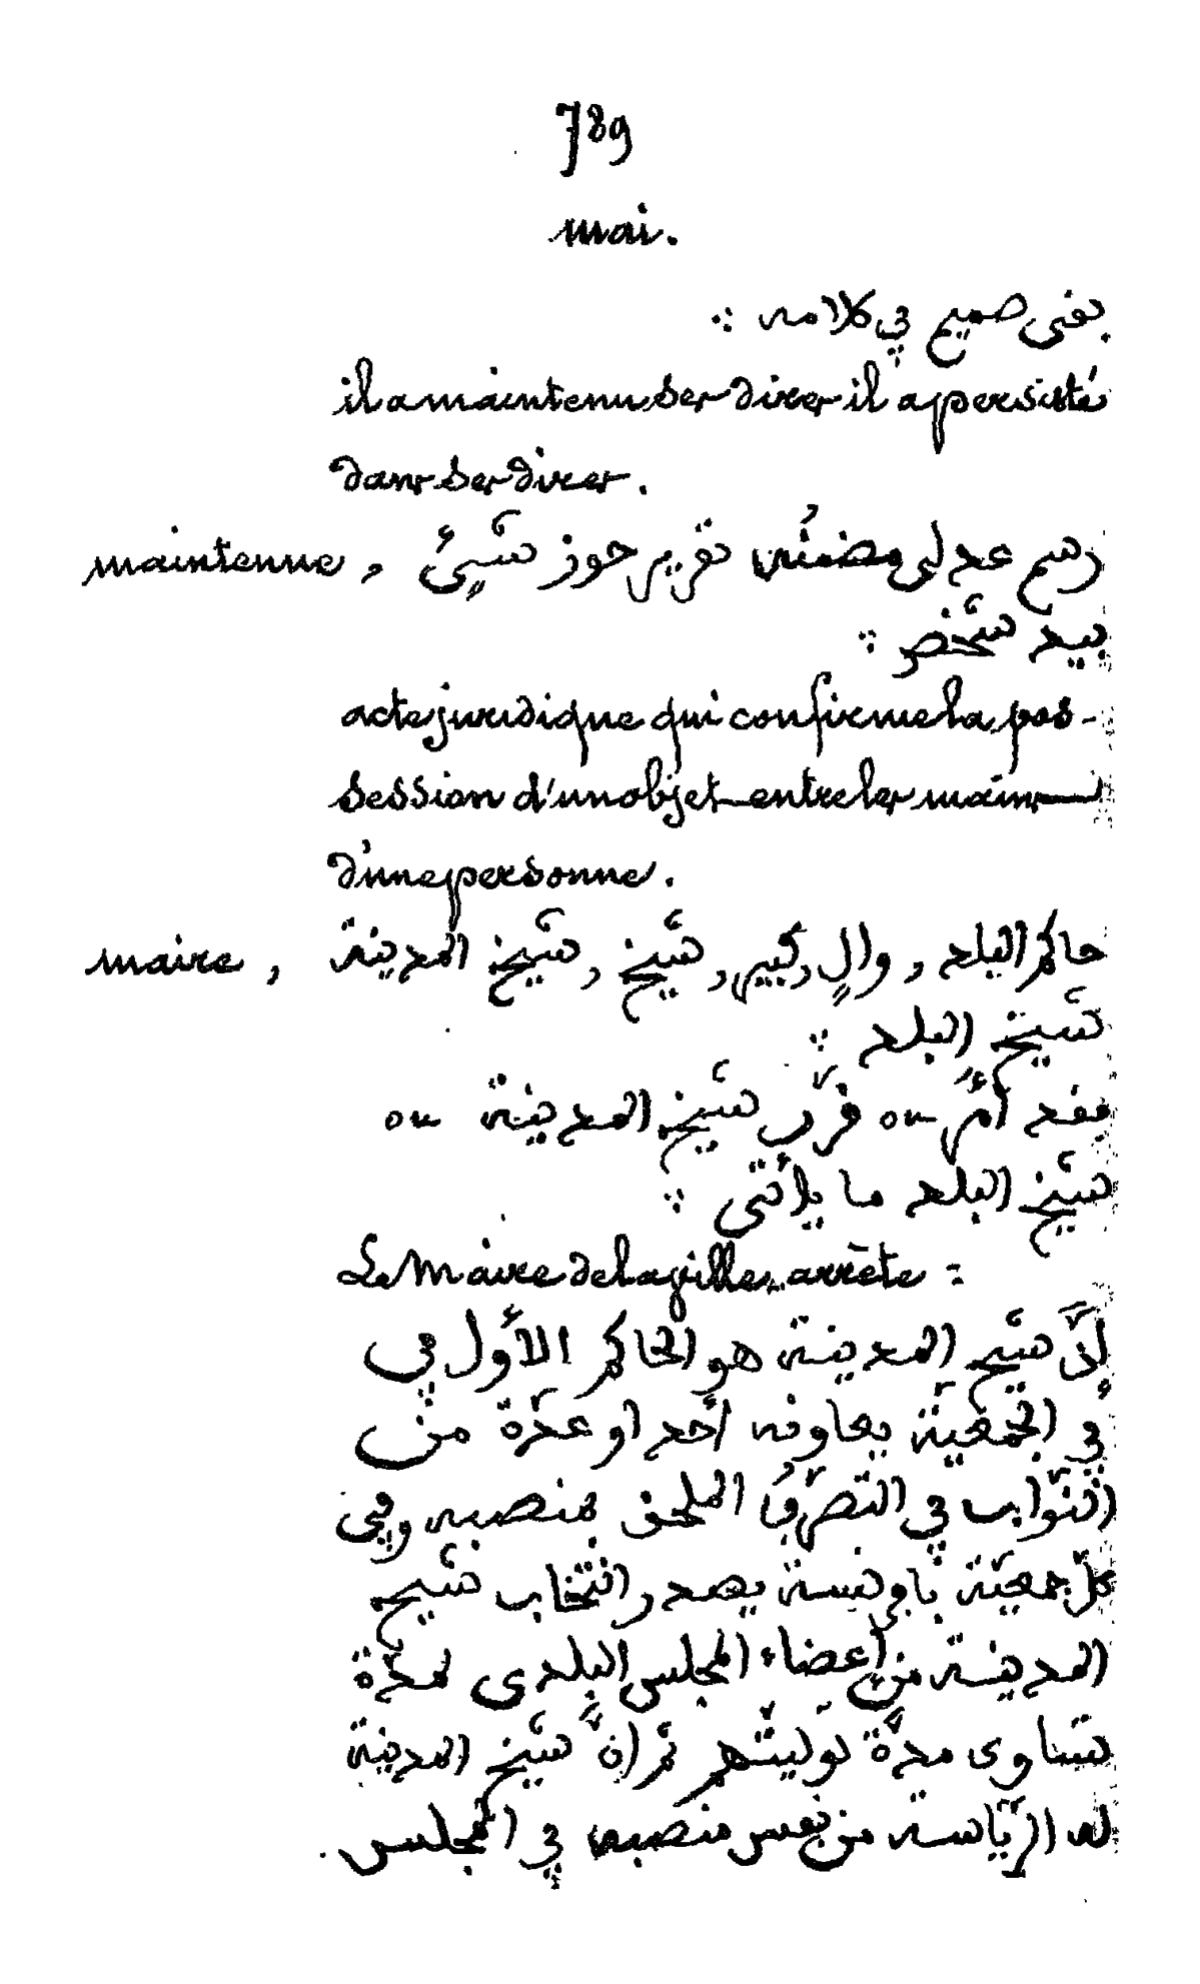 789
mai.
بقى صميم في كلامه ؞
il a maintenu ses dires il a persisté
dans ses dires.
maintenue, رسم عدلى مضمنُه تقرير حوز شيئٍ
بيد شخص ؞
acte juridique qui confirme la pos-
session d'un objet entre les mains
d'une personne.
maire, حاكم البلد , والٍ , كبير , شيخ , شيخ المدينة
شيخ البلد ؞
فقد أمَر ou قرّر شيخ المدينة ou
شيخ البلد ما يأتى ؞
Le Maire de la ville, arrête =
إنَّ شيخ المدينة هو الحاكم الأول في
في الجمعيّة يعاونه أحد او عدّة من
النوّاب في التصرّفُ الملحق بمنصبه وفي
كلّ جمعيّة بافرنسة يصدر انتخاب شيخ
المدينة من أعضاء المجلس البلدى لمدّة
تساوى مدّة توليتهم ثم انَّ شيخ المدينة
له الرّياسة من نفس منصبه في المجلس